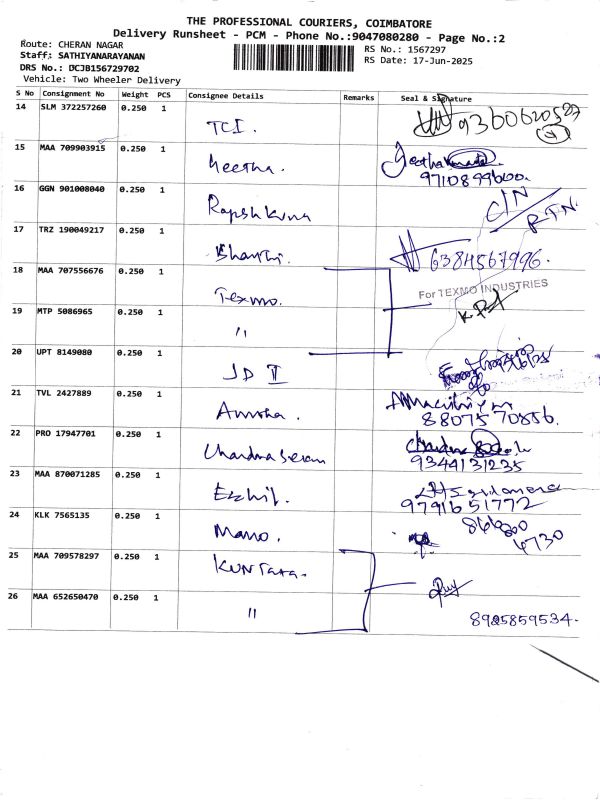 THE PROFESSIONAL COURIERS, COIMBATORE
Delivery Runsheet - PCM - Phone No.:9047080280 - Page No.:2
Route: CHERAN NAGAR
Staff: SATHIYANARAYANAN
DRS No.: DCJB156729702
Vehicle: Two Wheeler Delivery
RS No.: 1567297
RS Date: 17-Jun-2025
S No Consignment No Weight PCS Consignee Details Remarks Seal & Signature
14 SLM 372257260 0.250 1 TCI.
15 MAA 709903915 0.250 1 Geetha. Geetha
9710899600.
16 GGN 901008040 0.250 1
17 TRZ 190049217 0.250 1 6384567996.
18 MAA 707556676 0.250 1 Texmo. For TEXMO INDUSTRIES
19 MTP 5086965 0.250 1 "
20 UPT 8149080 0.250 1
21 TVL 2427889 0.250 1
88075 70856.
22 PRO 17947701 0.250 1
9344131235
23 MAA 870071285 0.250 1
9791651772
24 KLK 7565135 0.250 1 Mano.
25 MAA 709578297 0.250 1
26 MAA 652650470 0.250 1 " 8925859534.